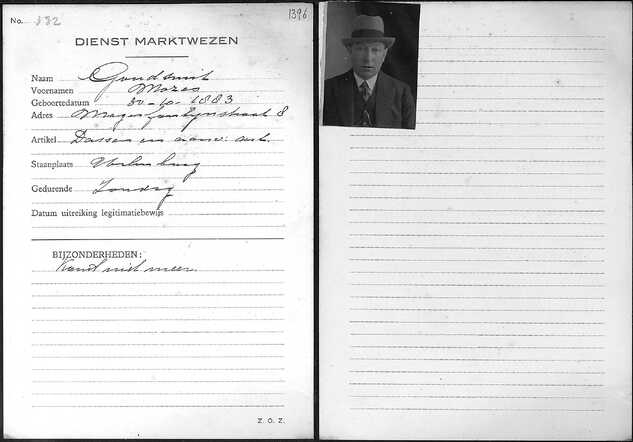 No. 132
1396
DIENST MARKTWEZEN
Naam Goudsmit
Voornamen Mozes
Geboortedatum 30-10-1883
Adres 8
Artikel Dassen en aanv. art.
Staanplaats Uilenburg
Gedurende Zondag
Datum uitreiking legitimatiebewijs
BIJZONDERHEDEN:
Komt niet meer.
Z. O. Z.